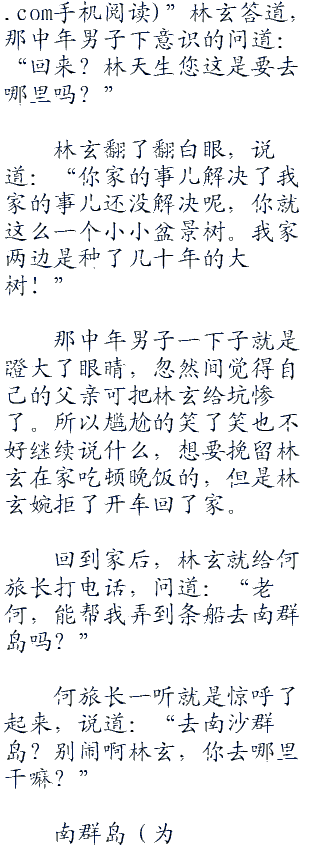 .com手机阅读)”林玄答道，
那中年男子下意识的问道：
“回来？林天生您这是要去
哪里吗？”
林玄翻了翻白眼，说
道：“你家的事儿解决了我
家的事儿还没解决呢，你就
这么一个小小盆景树。我家
两边是种了几十年的大
树！”
那中年男子一下子就是
瞪大了眼睛，忽然间觉得自
己的父亲可把林玄给坑惨
了。所以尴尬的笑了笑也不
好继续说什么，想要挽留林
玄在家吃顿晚饭的，但是林
玄婉拒了开车回了家。
回到家后，林玄就给何
旅长打电话，问道：“老
何，能帮我弄到条船去南群
岛吗？”
何旅长一听就是惊呼了
起来，说道：“去南沙群
岛？别闹啊林玄，你去哪里
干嘛？”
南群岛（为